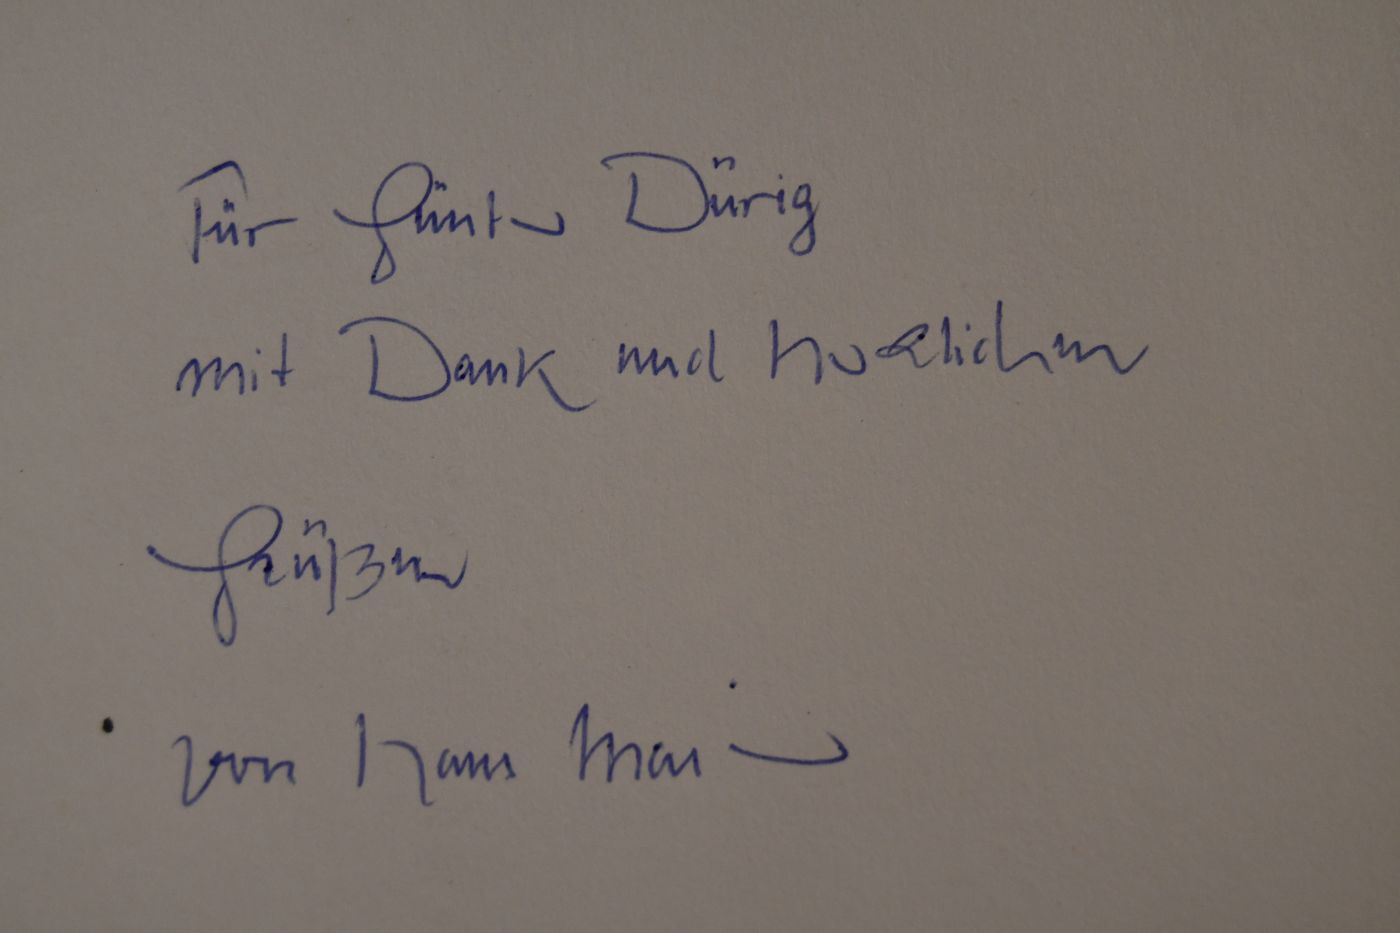 Für Günter Dürig
mit Dank und herzlichen
Grüßen
von Hans Maier